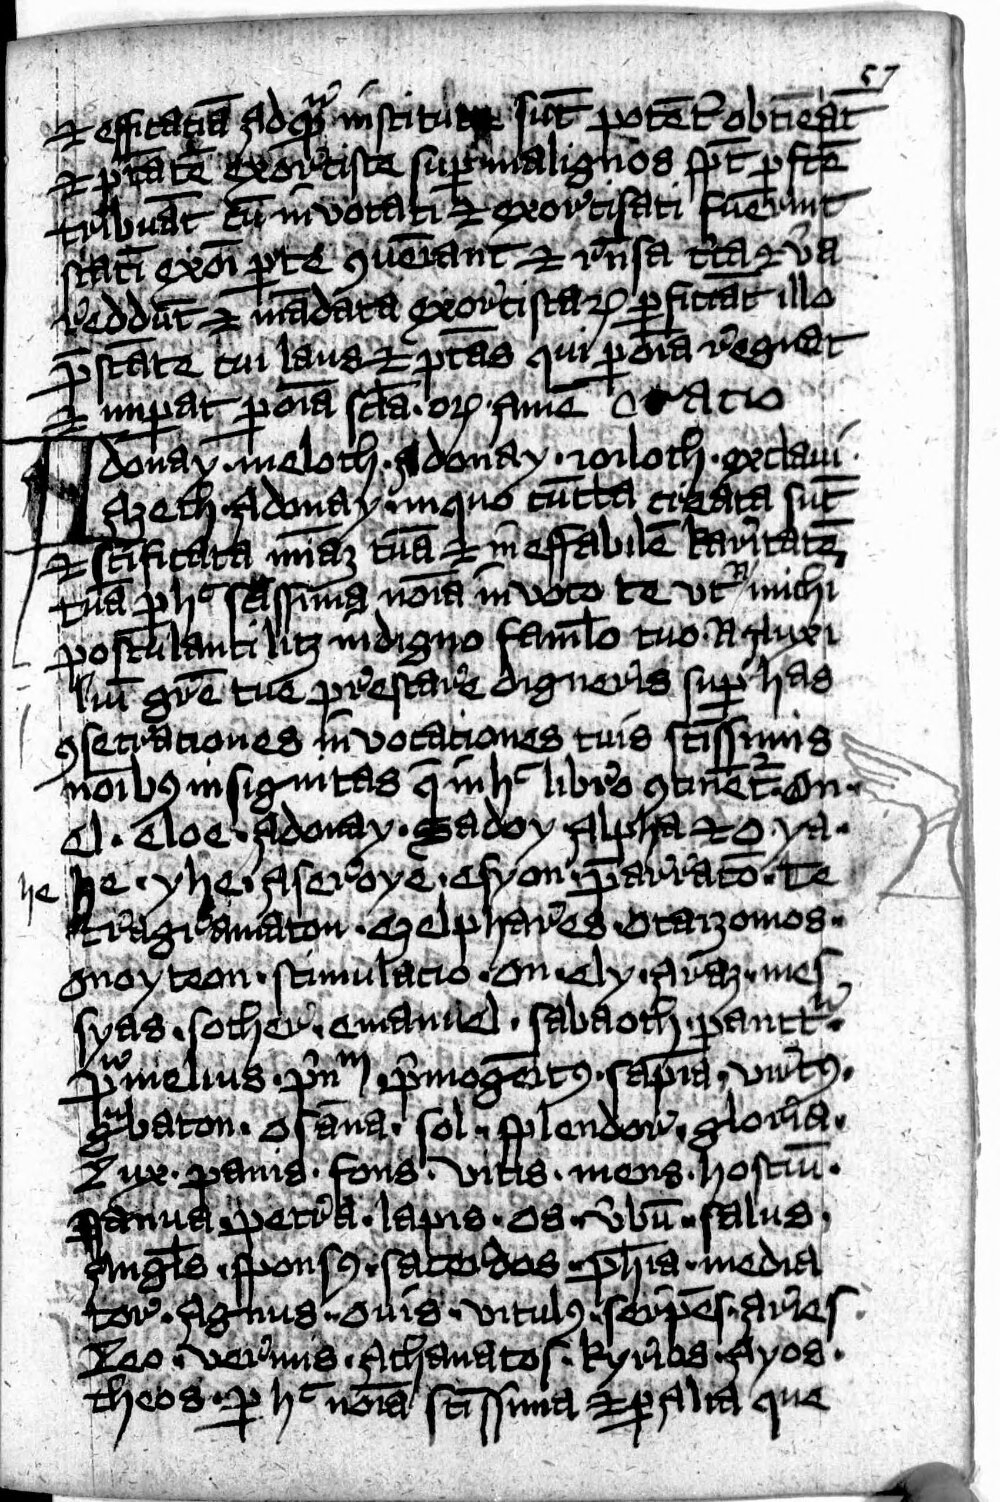 57
⁊ efficatiā Adqr̄ institute sūt potēt obtieāt
⁊ ptātē exorciste sup malignos spt pfcē
tribuāt cū invocati ⁊ exorcisati fuerint
statī exōi pte ꝯuērant ⁊ rn̄sa c̄ta ⁊ v̄a
reddūt ⁊ mādata exorcistaꝝ pficiāt illo
pstāte cui laus ⁊ ptās qui p oīa regnat
⁊ impat p oīa scl̄a · oꝝ · Amē Oracio
Adonay · meloth · Adonay · ioiloth · exclaui ·
Azeth · Adonay · in quo cūcta creata sūt
⁊ scificata miāꝫ tuā ⁊ ineffabilē karitatē
tuā p hc sāssima noīa invoco te vt michi
postulanti lꝫ indigno famlo tuo · N Auxi
liū gr̄e tue prestare digneris sup has
ꝯsecrationes invocationes tuis sc̄issimis
noībꝯ insignitas q̄ in hc libro ꝯtinēt · On ·
el · eloe · Adonay · Sadoy · Alpha ⁊ o · ya ·
he he · yhe · Aseroye · esyon · parratō · Te
tragramaton · ezelphares · otarzomos ·
onoyteon · stimulacio · on · ely · Araz · mes
syas · sother · emanuel · sabaoth · panctr ·
pmelius · prin m · pmogeītꝯ · sapīa · virtꝯ ·
gbaton · osāna · sol · splendor · gloria ·
Lux · panis · fons · vitis · mens · hostiū ·
Janua · petra · lapis · os · v̄bū · salus ·
Angl̄s · sponsꝯ · sacerdos · ph̄ia · media
tor · Agnus · ouis · vitulꝯ · serpēs · Aries ·
Leo · vermis · Athanatos · kyrios · Ayos ·
theos · p hc noīa sc̄issima ⁊ p Alia que